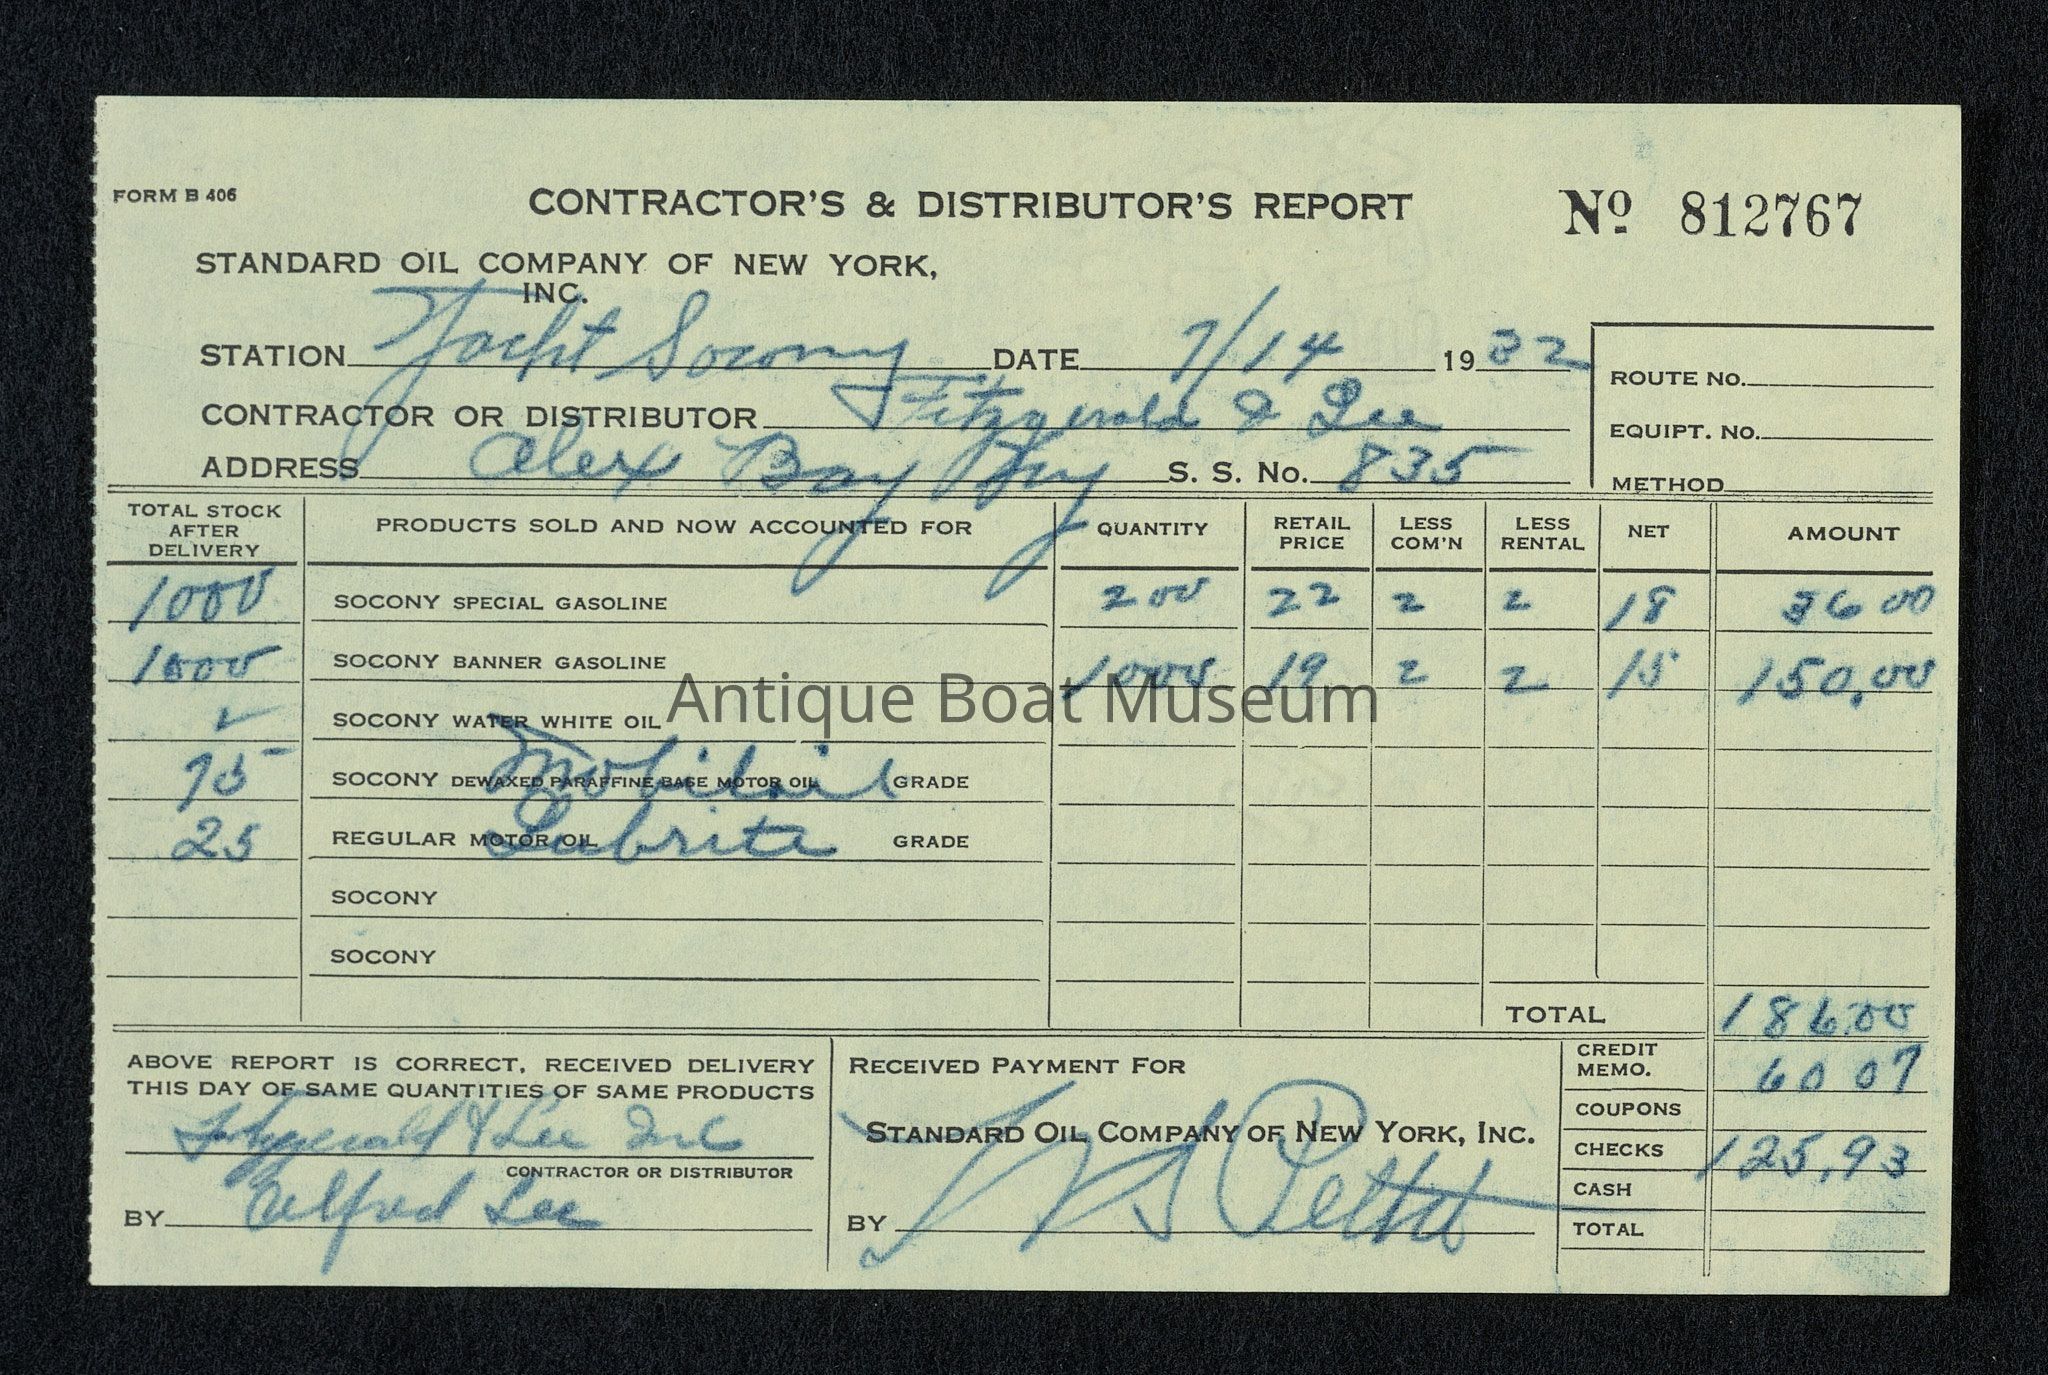 FORM B 406
CONTRACTOR'S & DISTRIBUTOR'S REPORT
Nº 812767
STANDARD OIL COMPANY OF NEW YORK,
INC.
STATION Yacht Socony DATE 7/14 1932
ROUTE NO.
CONTRACTOR OR DISTRIBUTOR Fitzgerald & Lee
EQUIPT. NO.
ADDRESS Alex Bay NY S. S. NO. 835
METHOD
TOTAL STOCK AFTER DELIVERY PRODUCTS SOLD AND NOW ACCOUNTED FOR QUANTITY RETAIL PRICE LESS COM'N LESS RENTAL NET AMOUNT
1000 SOCONY SPECIAL GASOLINE 200 22 2 2 18 36 00
1000 SOCONY BANNER GASOLINE 1000 19 2 2 15 150.00
SOCONY WATER WHITE OIL
Antique Boat Museum
75 SOCONY DEWAXED PARAFFINE BASE MOTOR OIL Mobiloil GRADE
25 REGULAR MOTOR OIL Lubrite GRADE
SOCONY
SOCONY
TOTAL 186.00
ABOVE REPORT IS CORRECT, RECEIVED DELIVERY
THIS DAY OF SAME QUANTITIES OF SAME PRODUCTS
Fitzgerald & Lee Inc
CONTRACTOR OR DISTRIBUTOR
BY Alfred Lee
RECEIVED PAYMENT FOR
STANDARD OIL COMPANY OF NEW YORK, INC.
BY
CREDIT MEMO. 60 07
COUPONS
CHECKS 125.93
CASH
TOTAL